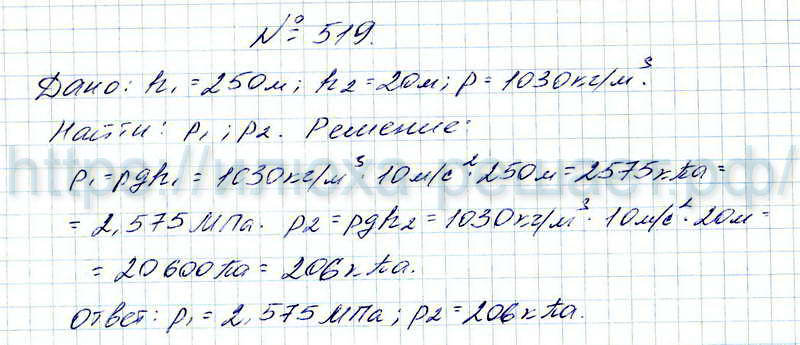 № 519.
Дано: h₁ = 250м; h₂ = 20м; ρ = 1030кг/м³.
Найти: p₁; p₂. Решение:
p₁ = ρgh₁ = 1030кг/м³ · 10м/с² · 250м = 2575кПа =
= 2,575 МПа. p₂ = ρgh₂ = 1030кг/м³ · 10м/с² · 20м =
= 20600Па = 206кПа.
Ответ: p₁ = 2,575 МПа; p₂ = 206кПа.